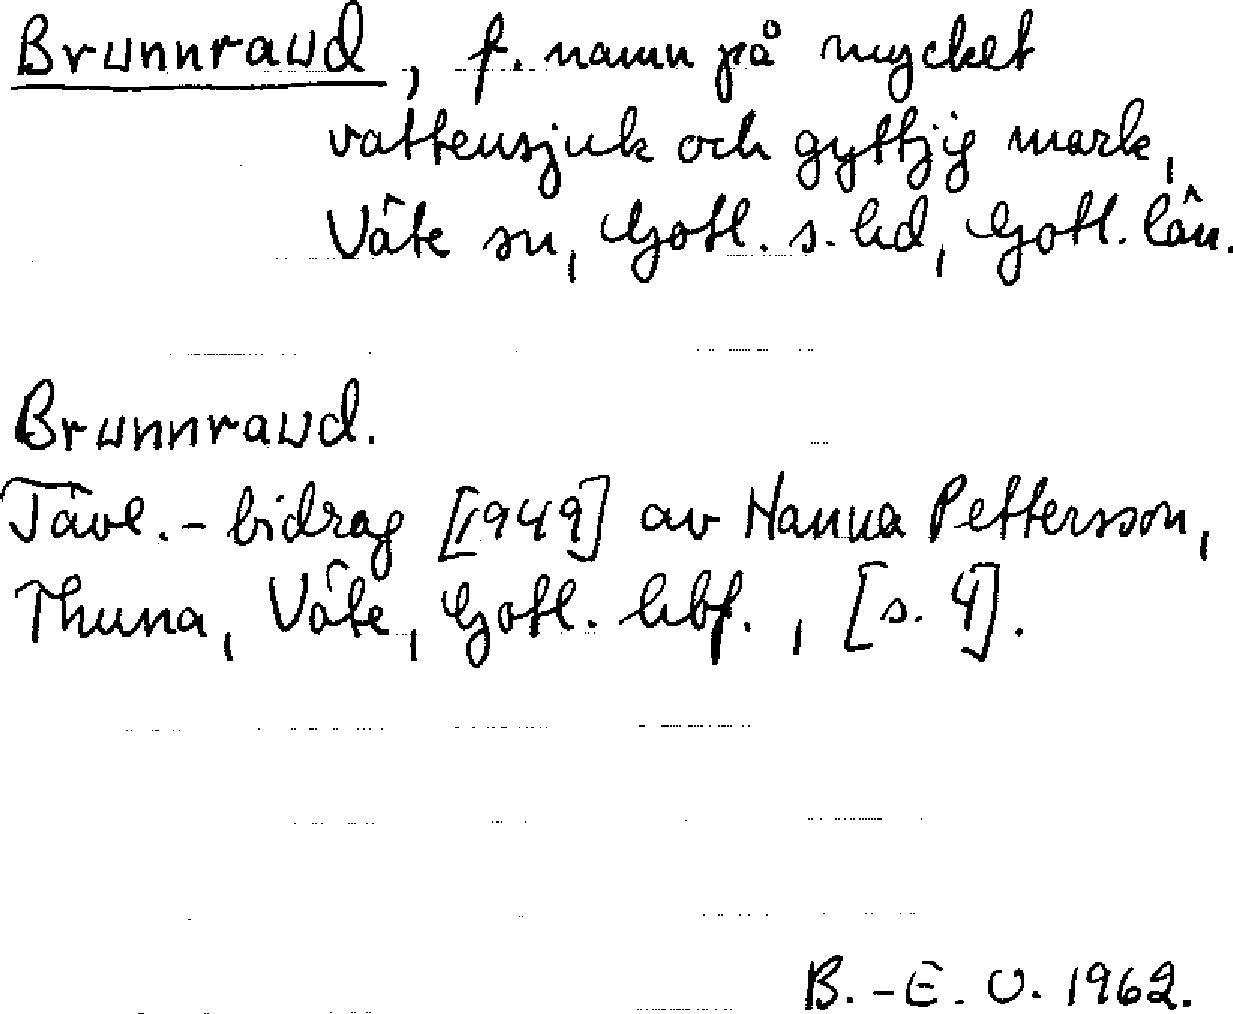 Brunnraud, f. namn på mycket
vattensjuk och gyttjig mark,
Väte sn, Gotl. s. hd, Gotl. län.
Brunnraud.
Tävl.-bidrag [1949] av Hanna Pettersson,
Thuna, Väte, Gotl. hbf., [s. 4].
B.-E. O. 1962.